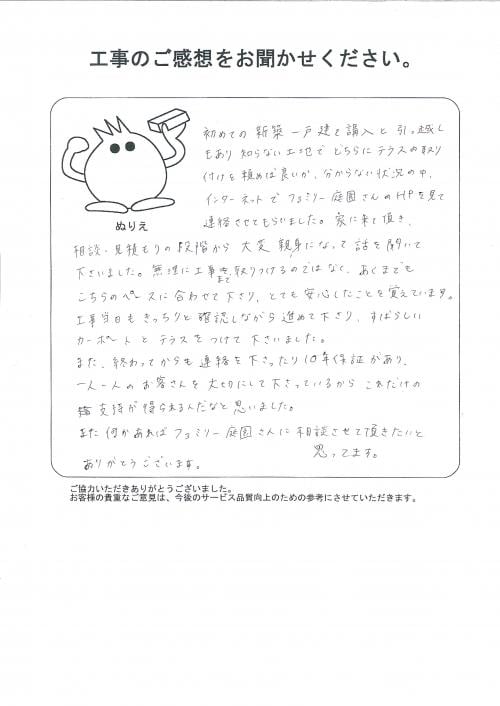 工事のご感想をお聞かせください。
初めての新築一戸建を購入と引っ越し
もあり知らない土地でどちらにテラスの取り
付けを頼めば良いか、分からない状況の中、
インターネットでファミリー庭園さんのHPを見て
連絡させてもらいました。家に来て頂き、
ぬりえ
相談・見積もりの段階から大変親身になって話を聞いて
下さいました。無理に工事をまで取りつけるのではなく、あくまでも
こちらのペースに合わせて下さり、とても安心したことを覚えています。
工事当日もきっちりと確認しながら進めて下さり、すばらしい
カーポートとテラスをつけて下さいました。
また、終わってからも連絡を下さったり10年保証があり、
一人一人のお客さんを大切にして下さっているからこれだけの
支持が得られるんだなと思いました。
また何かあればファミリー庭園さんに相談させて頂きたいと
思ってます。
ありがとうございます。
ご協力いただきありがとうございました。
お客様の貴重なご意見は、今後のサービス品質向上のための参考にさせていただきます。